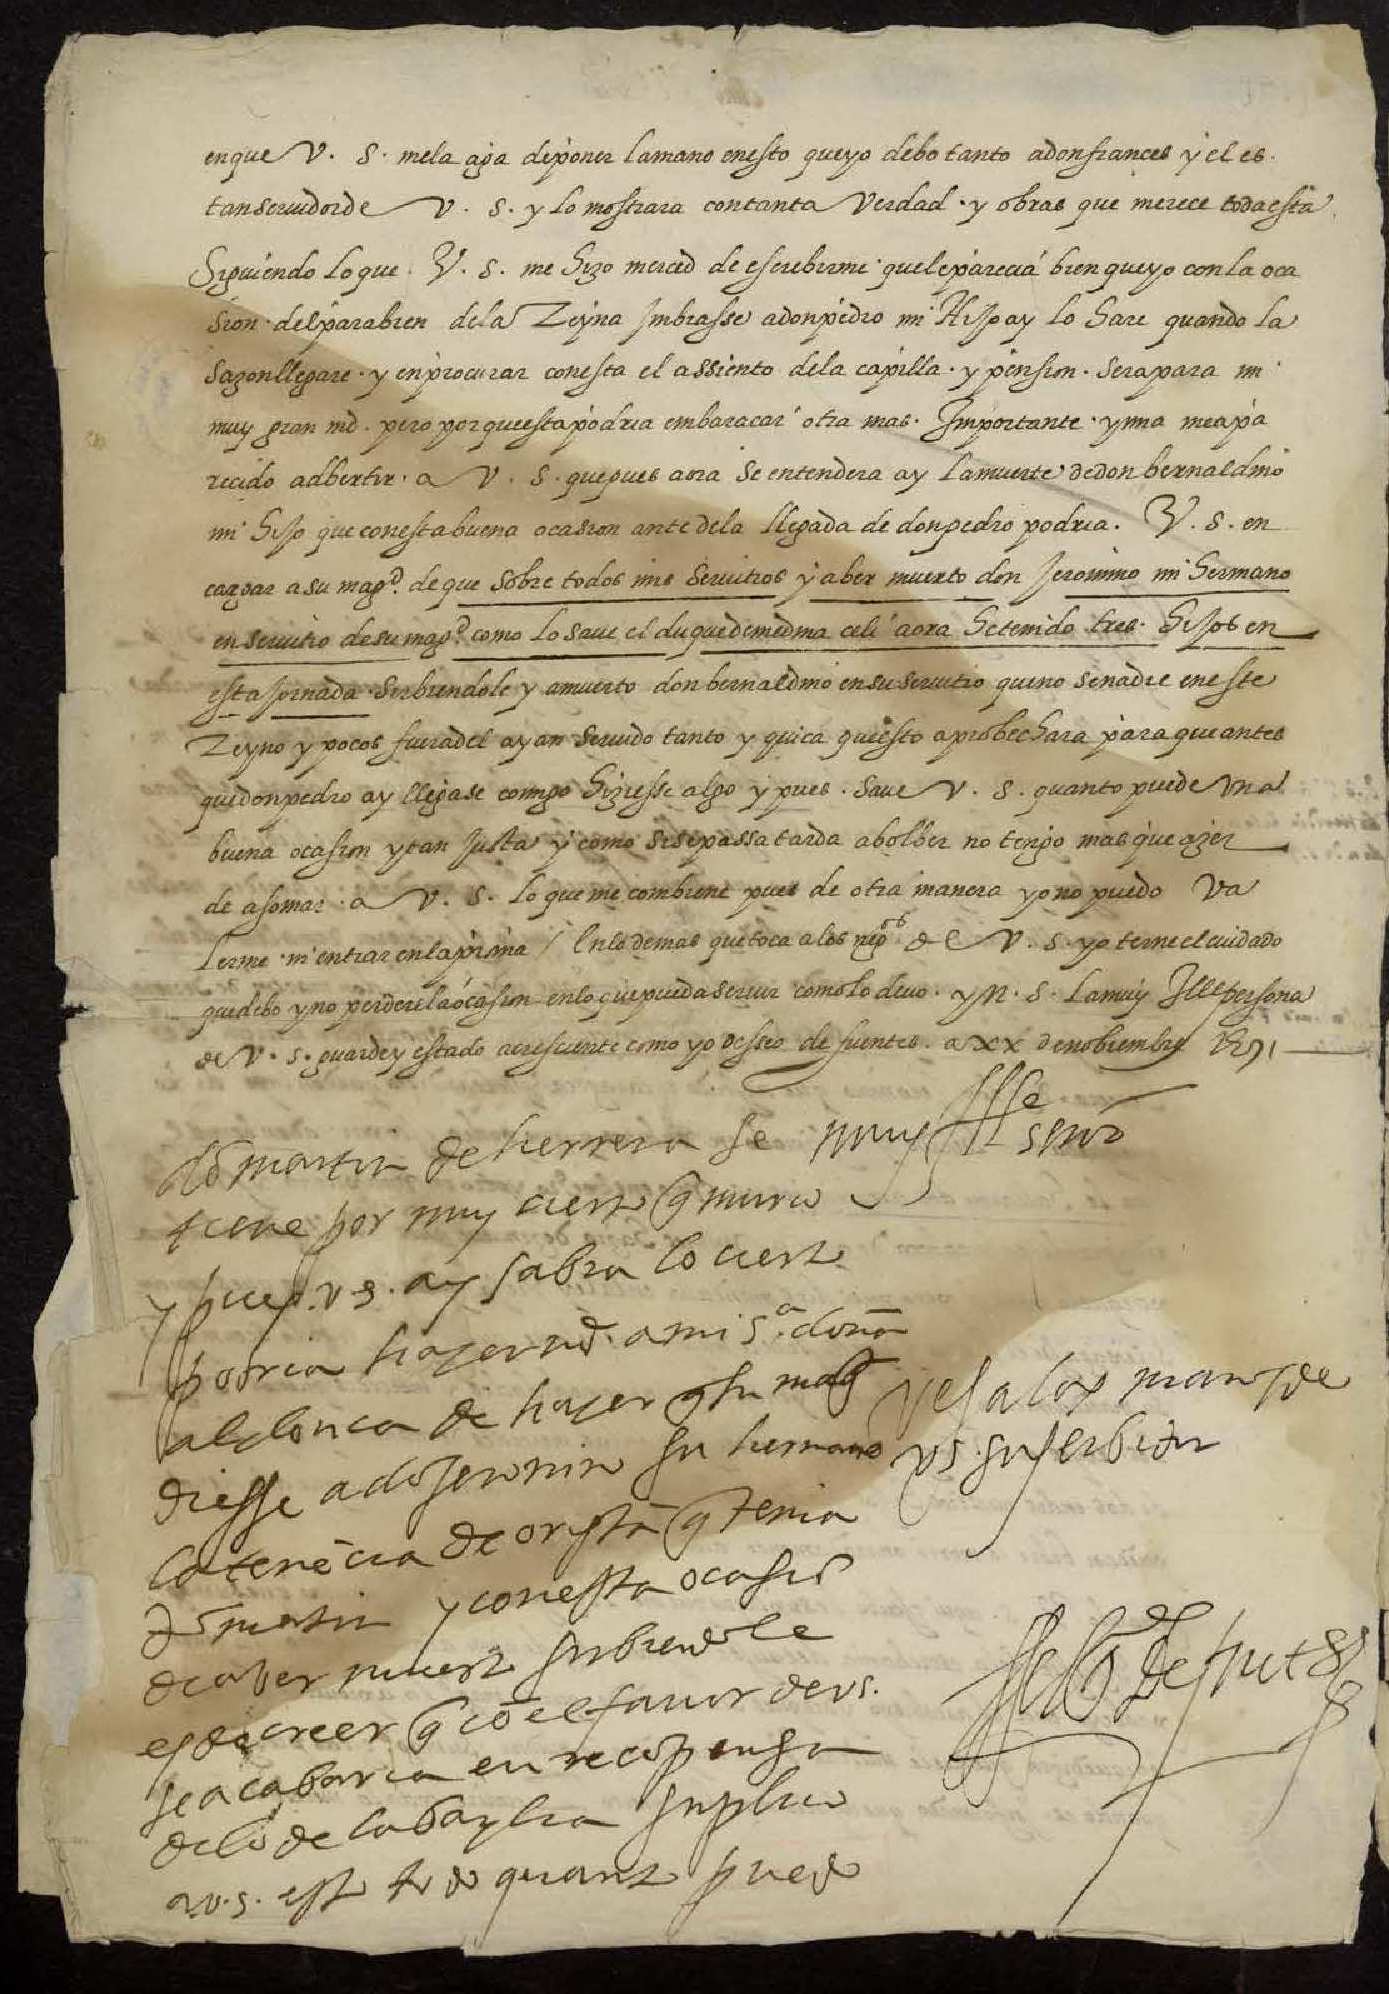 enque V. S. mela aga de poner lamano enesto queyo debo tanto adonfrances y el es.
tanseruidorde V. S. y lo mostrara contanta Verdad. y obras que merece todaesta
Siguiendo loque. V. S. me hizo merced de escrebirme. quelepareciá bien queyo con la oca
sion. delparabien dela Reyna Imbiasse adonpedro mi Hijo ay lo hare quando la
sazonllegare. y enprocurar conesta el assiento dela capilla. y pension. serapara mi
muy gran md. pero porqueestapodria embaracar otra mas. Importante. ynna meapa
recido adbertir. a V. S. quepues aora se entendera ay lamuerte dedon bernaldino
mi hijo que conesta buena ocasion ante dela llegada de donpedro podria. V. S. en
cargar a su magd. de que sobre todos mis seruitios y aber muerto don Jeronimo mi hermano
en seruitio desu magd. como lo saue el duquedemedina celi aora he tenido tres. hijos en
esta jornada. serbiendole y amuerto don bernaldino ensu seruitio queno senadie eneste
Reyno y pocos fueradel ayan seruido tanto y quica questo aprobechara para queantes
quedonpedro ay llegase comigo hiziesse algo y pues. saue V. S. quanto puede una
buena ocasion y tan justa y como sisepassa tarda abolber no tengo mas que azer
de asomar. a V. S. lo que me combiene pues de otra manera yo no puedo Va
lerme. ni entrar enlapimia / Enlodemas quetoca a los negos. de V. S. yo terne el cuidado
quedebo y no perderelaócasion enlo quepuedaseruir comolo deuo. y N. S. lamuy Ille persona
de V. S. guarde y estado acresciente como yo desseo de fuentes. a xx denobiembre 1571
muy Ille señor
dō martin de herrera se
tiene por muy cierto q̄ murio
y pues. v. s. ay sabra lo cierto
podria hazer md. a mi sa. doña
aldonca de hazer q̄ su magd
diesse a dō Jeronimo su hermano
la tenēcia de oristā q̄ tenia
dō martin y conesta ocasiō
de aber muerto sirbiendole
es de creer q̄ cō el fauor de v s.
se acabaria en recōpensa
delo de la baylia suplico
a v. s. esto todo quanto puedo
vesa las manos de
v s. su serbidor
el cōde de fuētes